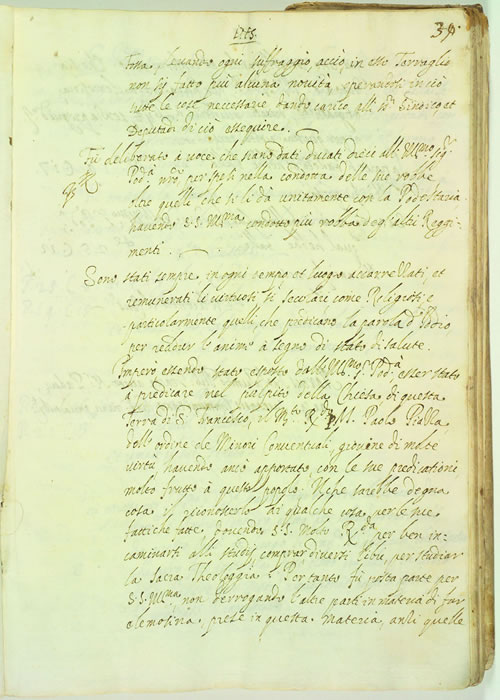 39.
fossa, levando ogni suffraggio acciò in esso Terraglio
non sij fatto più alcuna novità, operandosi in ciò
tutte le cose necessarie dando carico alli Sri Sindico et
Deputadi di ciò essequire.
Fù deliberato à voce, che siano dati ducati dieci all Illmo Sigr
Podtà nro, per spesi nella condotta delle sue robbe
oltre quelli che si li dà unitamente con la Podestaria
havendo S.S. Illma condotto più robba degl'altri Reggi-
menti.
Sono stati sempre in ogni tempo, et luogo accarrezzati, et
remunerati li virtuosi sì secolari come Religiosi, e
particolarmente quelli, che predicano la parola d'Iddio
per reddur l'anime à segno di stato di salute.
Impero essendo stato esposto dall Illmo S. Podtà esser stato
à predicare nel pulpito della Chiesa di questa
Terra di S. Francesco, il Mto Rdo P. M. Paolo
dell'ordine de Minori Conventuali, giovine di molte
virtù, havendo anco apportato con le sue predicationi
molto frutto à questo popolo. Nepe sarebbe degna
cosa il riconoscerlo di qualche cosa per le sue
fattiche fatte, dovendo S.S. Molto Rda per ben in-
caminarsi alli studij comprar diversi libri, per studiar
la Sacra Theologgia. Pertanto fù posta parte per
S.S. Illma, non derrogando l'altre parti in materia di far
elemosina, prese in questa materia, anzi quelle